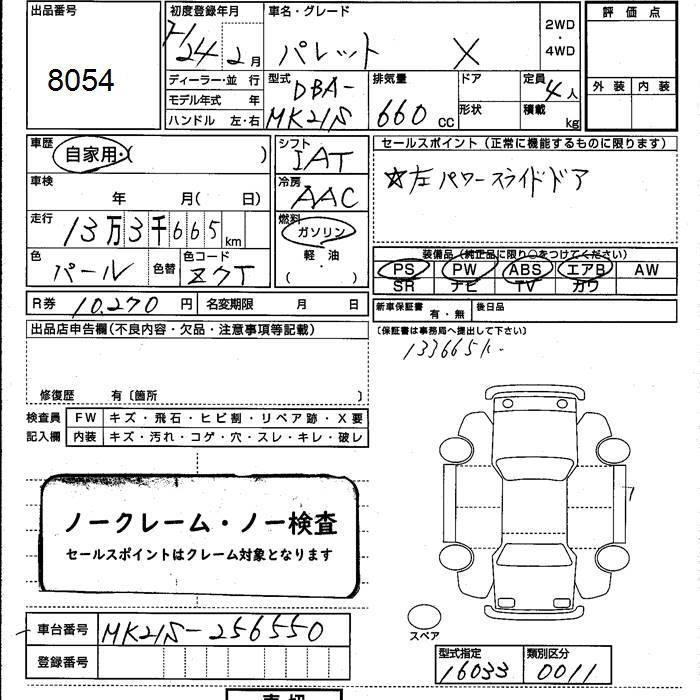 出品番号
8054
初度登録年月
H24 2月
車名・グレード
パレット X
2WD
・
4WD
評価点
外装 内装
ディーラー・並 行
モデル年式 年
ハンドル 左・右
型式
DBA-
MK21S
排気量
660 cc
ドア
形状
定員
4人
積載
kg
車歴
自家用・( )
車検
年 月( 日)
走行
13万3千665km
色
パール
色替
色コード
ZCT
シフト
IAT
冷房
AAC
燃料
ガソリン
軽・油
( )
セールスポイント(正常に機能するものに限ります)
☆左パワースライドドア
装備品(純正品に限り○をつけてください)
PS PW ABS エアB AW
SR ナビ TV カワ
R券 10,270 円
名変期限 月 日
新車保証書 有・無
後日品
(保証書は事務局へ提出して下さい)
133665K-
出品店申告欄(不良内容・欠品・注意事項等記載)
修復歴 有〔箇所 〕
検査員
記入欄
FW キズ・飛石・ヒビ割・リペア跡・X要
内装 キズ・汚れ・コゲ・穴・スレ・キレ・破レ
ノークレーム・ノー検査
セールスポイントはクレーム対象となります
車台番号 MK21S-256550
登録番号
スペア
型式指定
16033
類別区分
0011